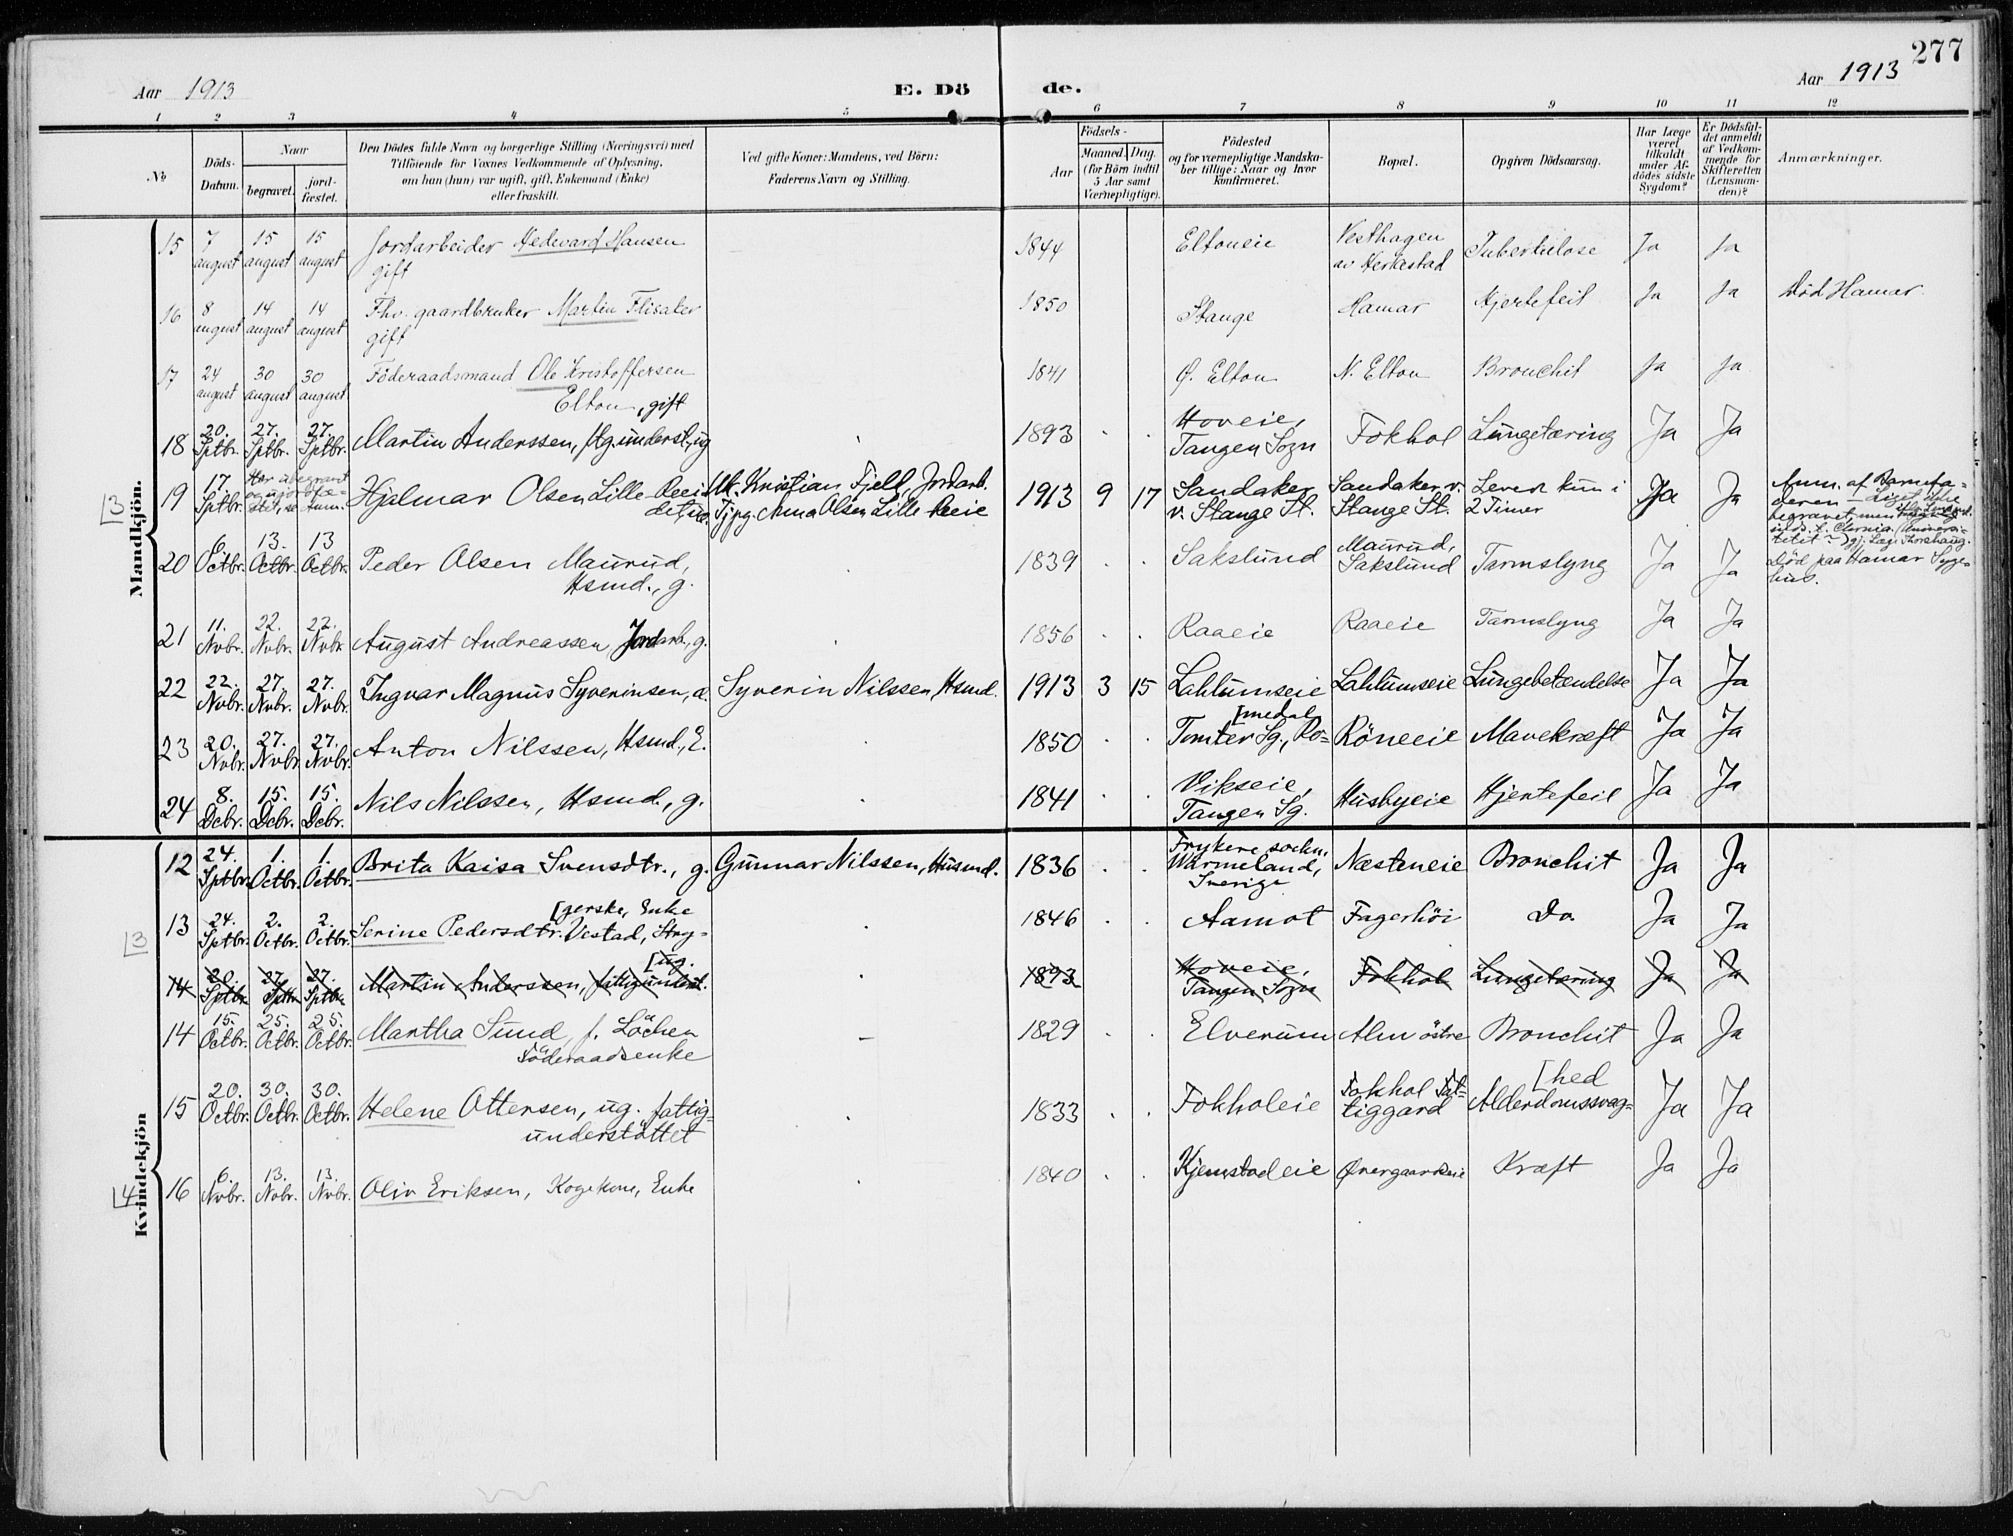 277
Aar 1913 E. Dö de. Aar 1913
1 2 3 4 5 6 7 8 9 10 11 12
No
Döds-Datum.
Naar
begravet. jord-fæstet.
Den Dödes fulde Navn og borgerlige Stilling (Næringsvei) med
Tilföiende for Voxnes Vedkommende af Oplysning,
om han (hun) var ugift, gift, Enkemand (Enke)
eller fraskilt.
Ved gifte Koner: Mandens, ved Börn:
Faderens Navn og Stilling.
Födsels-
Aar Maaned. Dag.
(for Börn indtil
5 Aar samt
Værnepligtige).
Födested
og for værnepligtige Mandska-
ber tillige: Naar og hvor
konfirmeret.
Bopæl.
Opgiven Dödsaarsag.
Har Læge
været
tilkaldt
under Af-
dödes sidste
Sygdom?
Er Dödsfal-
det anmeldt
af Vedkom-
mende for
Skifteretten
(Lensman-
den)?
Anmærkninger.
Mandkjön.
15 7 august 15 august 15 august Jordarbeider Hedevard Hansen gift 1844 Eltoneie Vesthagen av Herkestad Tuberkulose Ja Ja
16 8 august 14 august 14 august Fhv. gaardbruker Martin Flisaker gift 1850 Stange Hamar Hjertefeil Ja Ja Död Hamar
17 24 august 30 august 30 august Föderaadsmand Ole Kristoffersen Elton, gift 1841 Ö. Elton N. Elton Bronchit Ja Ja
18 20. Sptbr. 27. Sptbr. 27. Sptbr. Martin Anderssen, ftg.underst., ug 1893 Hoveie, Tangen Sogn Fokhol Lungetæring Ja Ja
3
19 17. Sptbr. Hjalmar Olsen Lille Kristian Fjell, Jordarb. Tjpg. Anna Olsen Lille 1913 9 17 Sandaker v. Stange St. Sandaker v. Stange St. Levet kun i 2 Timer Ja Ja Anm. af Barnefa-
deren
20 6. Octbr. 13. Octbr. 13 Octbr. Peder Olsen Maurud, Hsmd., g. 1839 Sakslund Maurud, Sakslund Tarmslyng Ja Ja Död paa Hamar Syge-
hus.
21 11. Nvbr. 22. Nvbr. 22. Nvbr. August Andreassen, Jordarb., g. 1856 Raaeie Raaeie Tarmslyng Ja Ja
22 22. Nvbr. 27. Nvbr. 27. Nvbr. Ingvar Magnus Syverinsen, Syverin Nilssen, Hsmd. 1913 3 15 Lahlumseie Lahlumseie Lungebetændelse Ja Ja
23 20. Nvbr. 27. Nvbr. 27. Nvbr. Anton Nilssen, Hsmd., E. 1850 Tomter Sg., Ro-[medal Röneeie Mavekræft Ja Ja
24 8. Dcbr. 15. Dcbr. 15. Dcbr. Nils Nilssen, Hsmd., g. 1841 Vikseie, Tangen Sg. Husbyeie Hjertefeil Ja Ja
Kvindekjön
12 24. Sptbr. 1. Octbr. 1. Octbr. Brita Kaisa Svensdtr., g. Gunnar Nilssen, Husmd. 1836 Frykere sockn, Wärmeland, Sverige Næsteneie Bronchit Ja Ja
3
13 24. Sptbr. 2. Octbr. 2. Octbr. Serine Pedersdtr. Vestad, Stry-[gerske, Enke 1846 Aamot Fagerhöi Do. Ja Ja
14 20. Sptbr. 27. Sptbr. 27. Sptbr. Martin Anderssen, fattigunderst. [ug. 1893 Hoveie, Tangen Sogn Fokhol Lungetæring Ja Ja
14 15. Octbr. 25. Octbr. 25. Octbr. Martha Sund, f. Löchen Föderaadsenke – 1829 Elverum Alm östre Bronchit Ja Ja
15 20. Octbr. 30. Octbr. 30. Octbr. Helene Ottersen, ug. fattig-understöttet 1833 Fokholeie Fokhol Fat-tiggard Alderdomssvag-[hed Ja Ja
4
16 6. Nvbr. 13. Nvbr. 13. Nvbr. Oliv Eriksen, Kogekone, Enke 1840 Kjemstadeie Övergaardseie Kræft Ja Ja